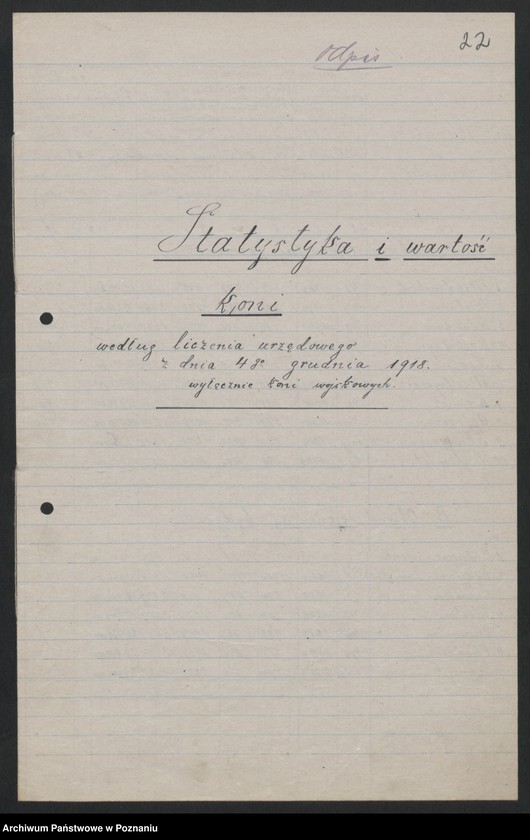 22
Odpis
Statystyka i wartość
koni
według liczenia urzędowego
z dnia 4go grudnia 1918.
wyłęcznie koni wojskowych.
Archiwum Państwowe w Poznaniu